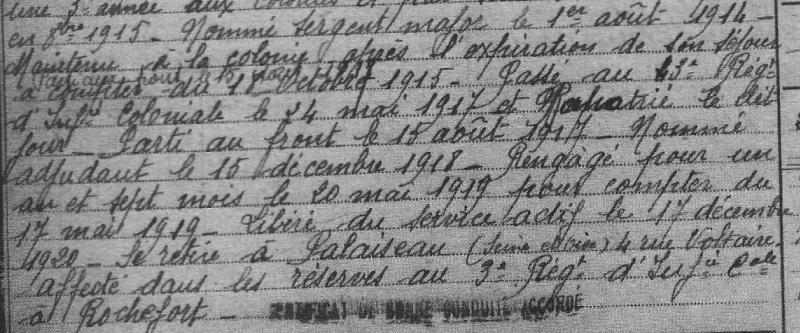 une 3e année aux colonies et
en 8bre 1915 - Nommé sergent major le 1er août 1914 -
Maintenu à la colonie après l'expiration de son séjour
à compter du 18 Octobre 1915 - Passé au 43e Régt
d'Infie Coloniale le 24 mai 1917 et Rapatrié le dit
jour - Parti au front le 18 août 1917 - Nommé
adjudant le 15 décembre 1918 - Rengagé pour un
an et sept mois le 20 mai 1919 pour compter du
17 mai 1919 - Libéré du service actif le 17 décembre
1920 - Se retire à Palaiseau (Seine et Oise) 4 rue Voltaire.
affecté dans les réserves au 3e Régt d'Infie Cole
à Rochefort - CERTIFICAT DE BONNE CONDUITE ACCORDÉ